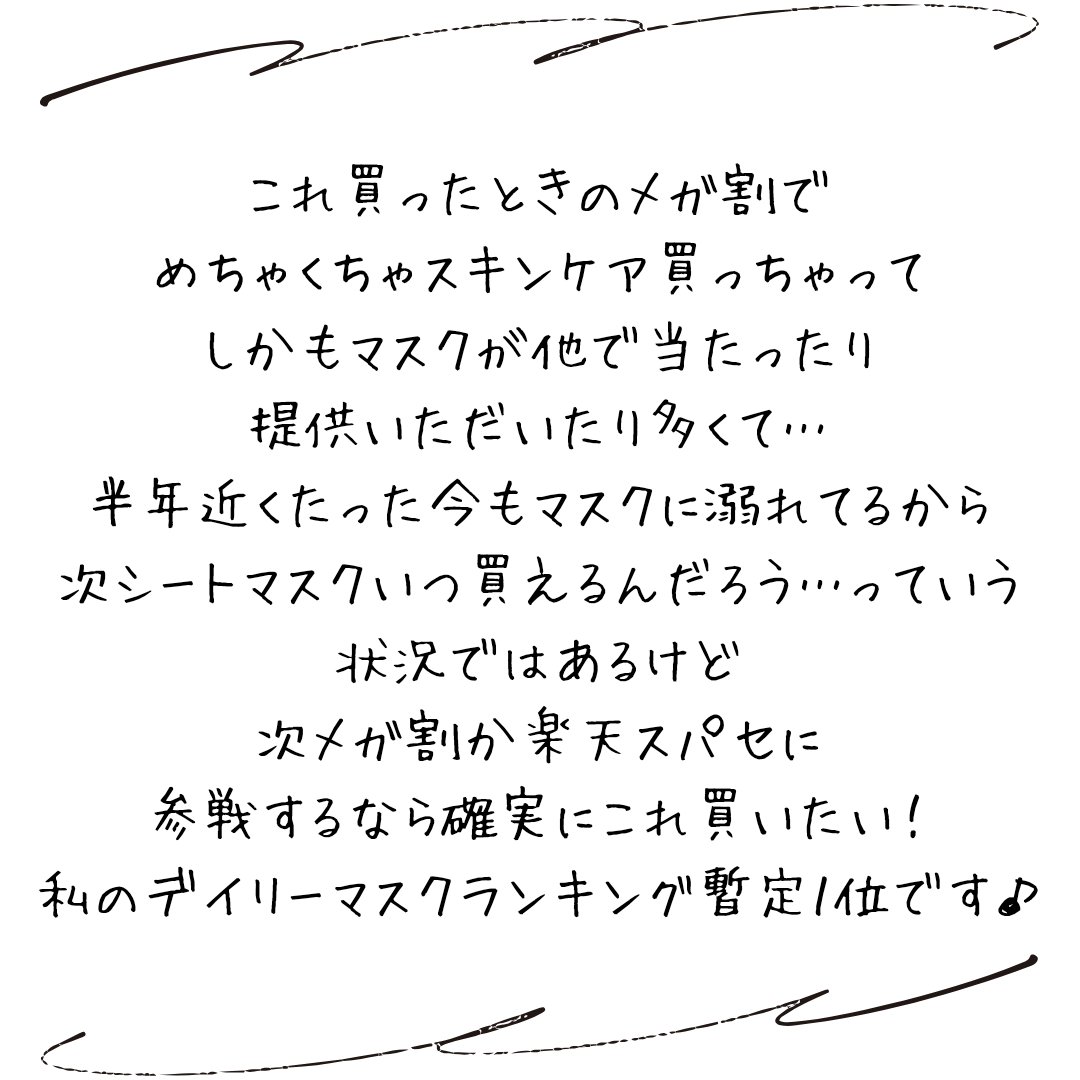 これ買ったときのメガ割で
めちゃくちゃスキンケア買っちゃって
しかもマスクが他で当たったり
提供いただいたり多くて…
半年近くたった今もマスクに溺れてるから
次シートマスクいつ買えるんだろう…っていう
状況ではあるけど
次メガ割か楽天スパセに
参戦するなら確実にこれ買いたい！
私のデイリーマスクランキング暫定1位です♪